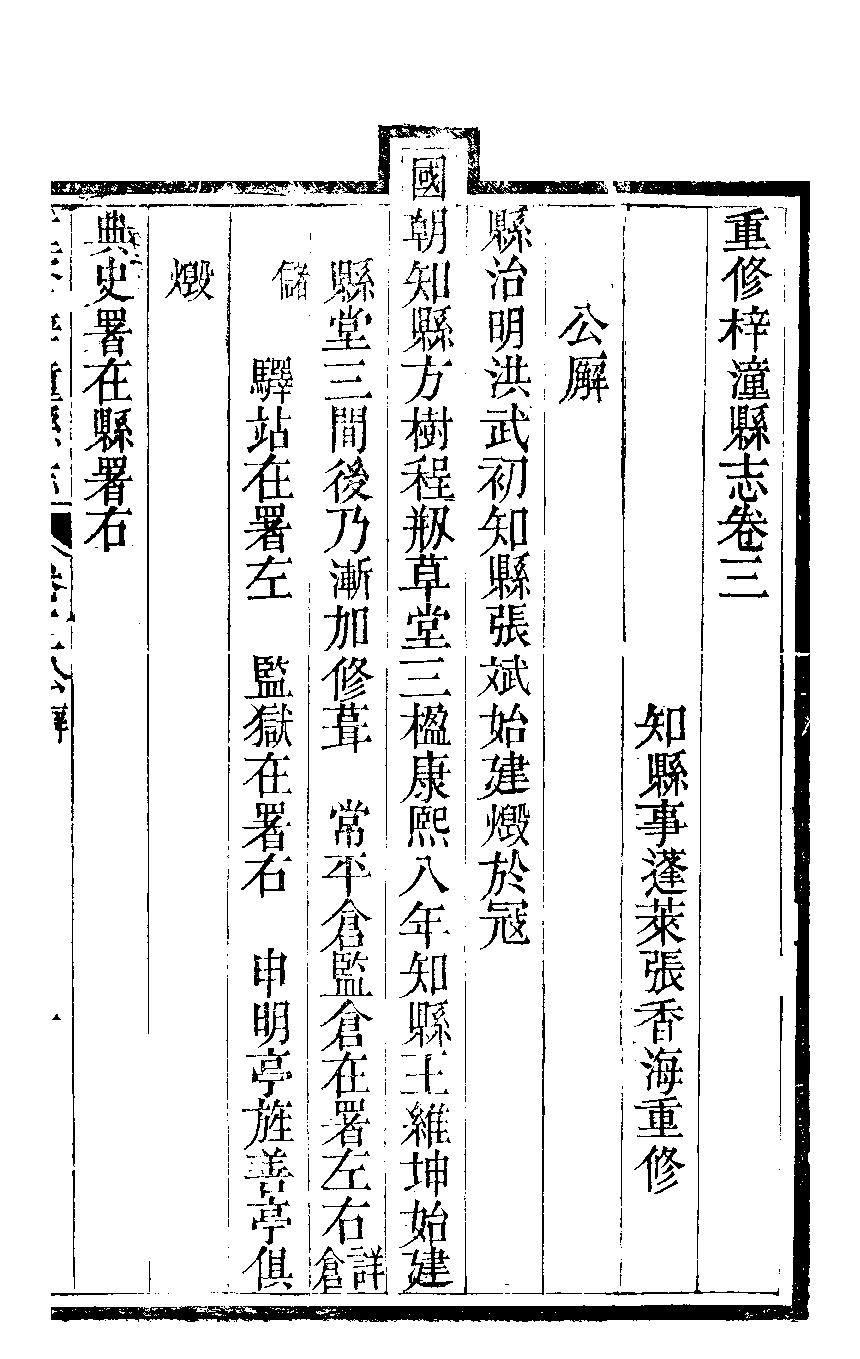 重修梓潼縣志卷三
知縣事蓬萊張香海重修
公廨
縣治明洪武初知縣張斌始建燬於寇
國朝知縣方樹程剏草堂三楹康熙八年知縣王維坤始建
縣堂三間後乃漸加修葺　常平倉監倉在署左右詳倉
儲　驛站在署左　監獄在署右　申明亭旌善亭俱
燬
典史署在縣署右